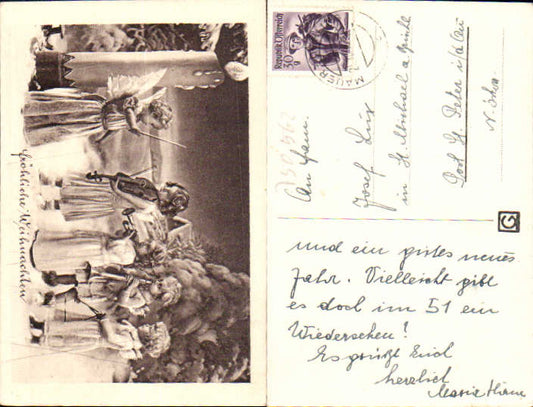 fröhliche Weihnachten
Republik Österreich
30 g
MAUER
An Fam.
Josef
in St. Michael a
Post St. Peter i/d Au
N. Österr.
G
und ein gutes neues
Jahr. Vielleicht gibt
es doch im 51 ein
Wiedersehen!
Es grüßt Euch
herzlich
Maria